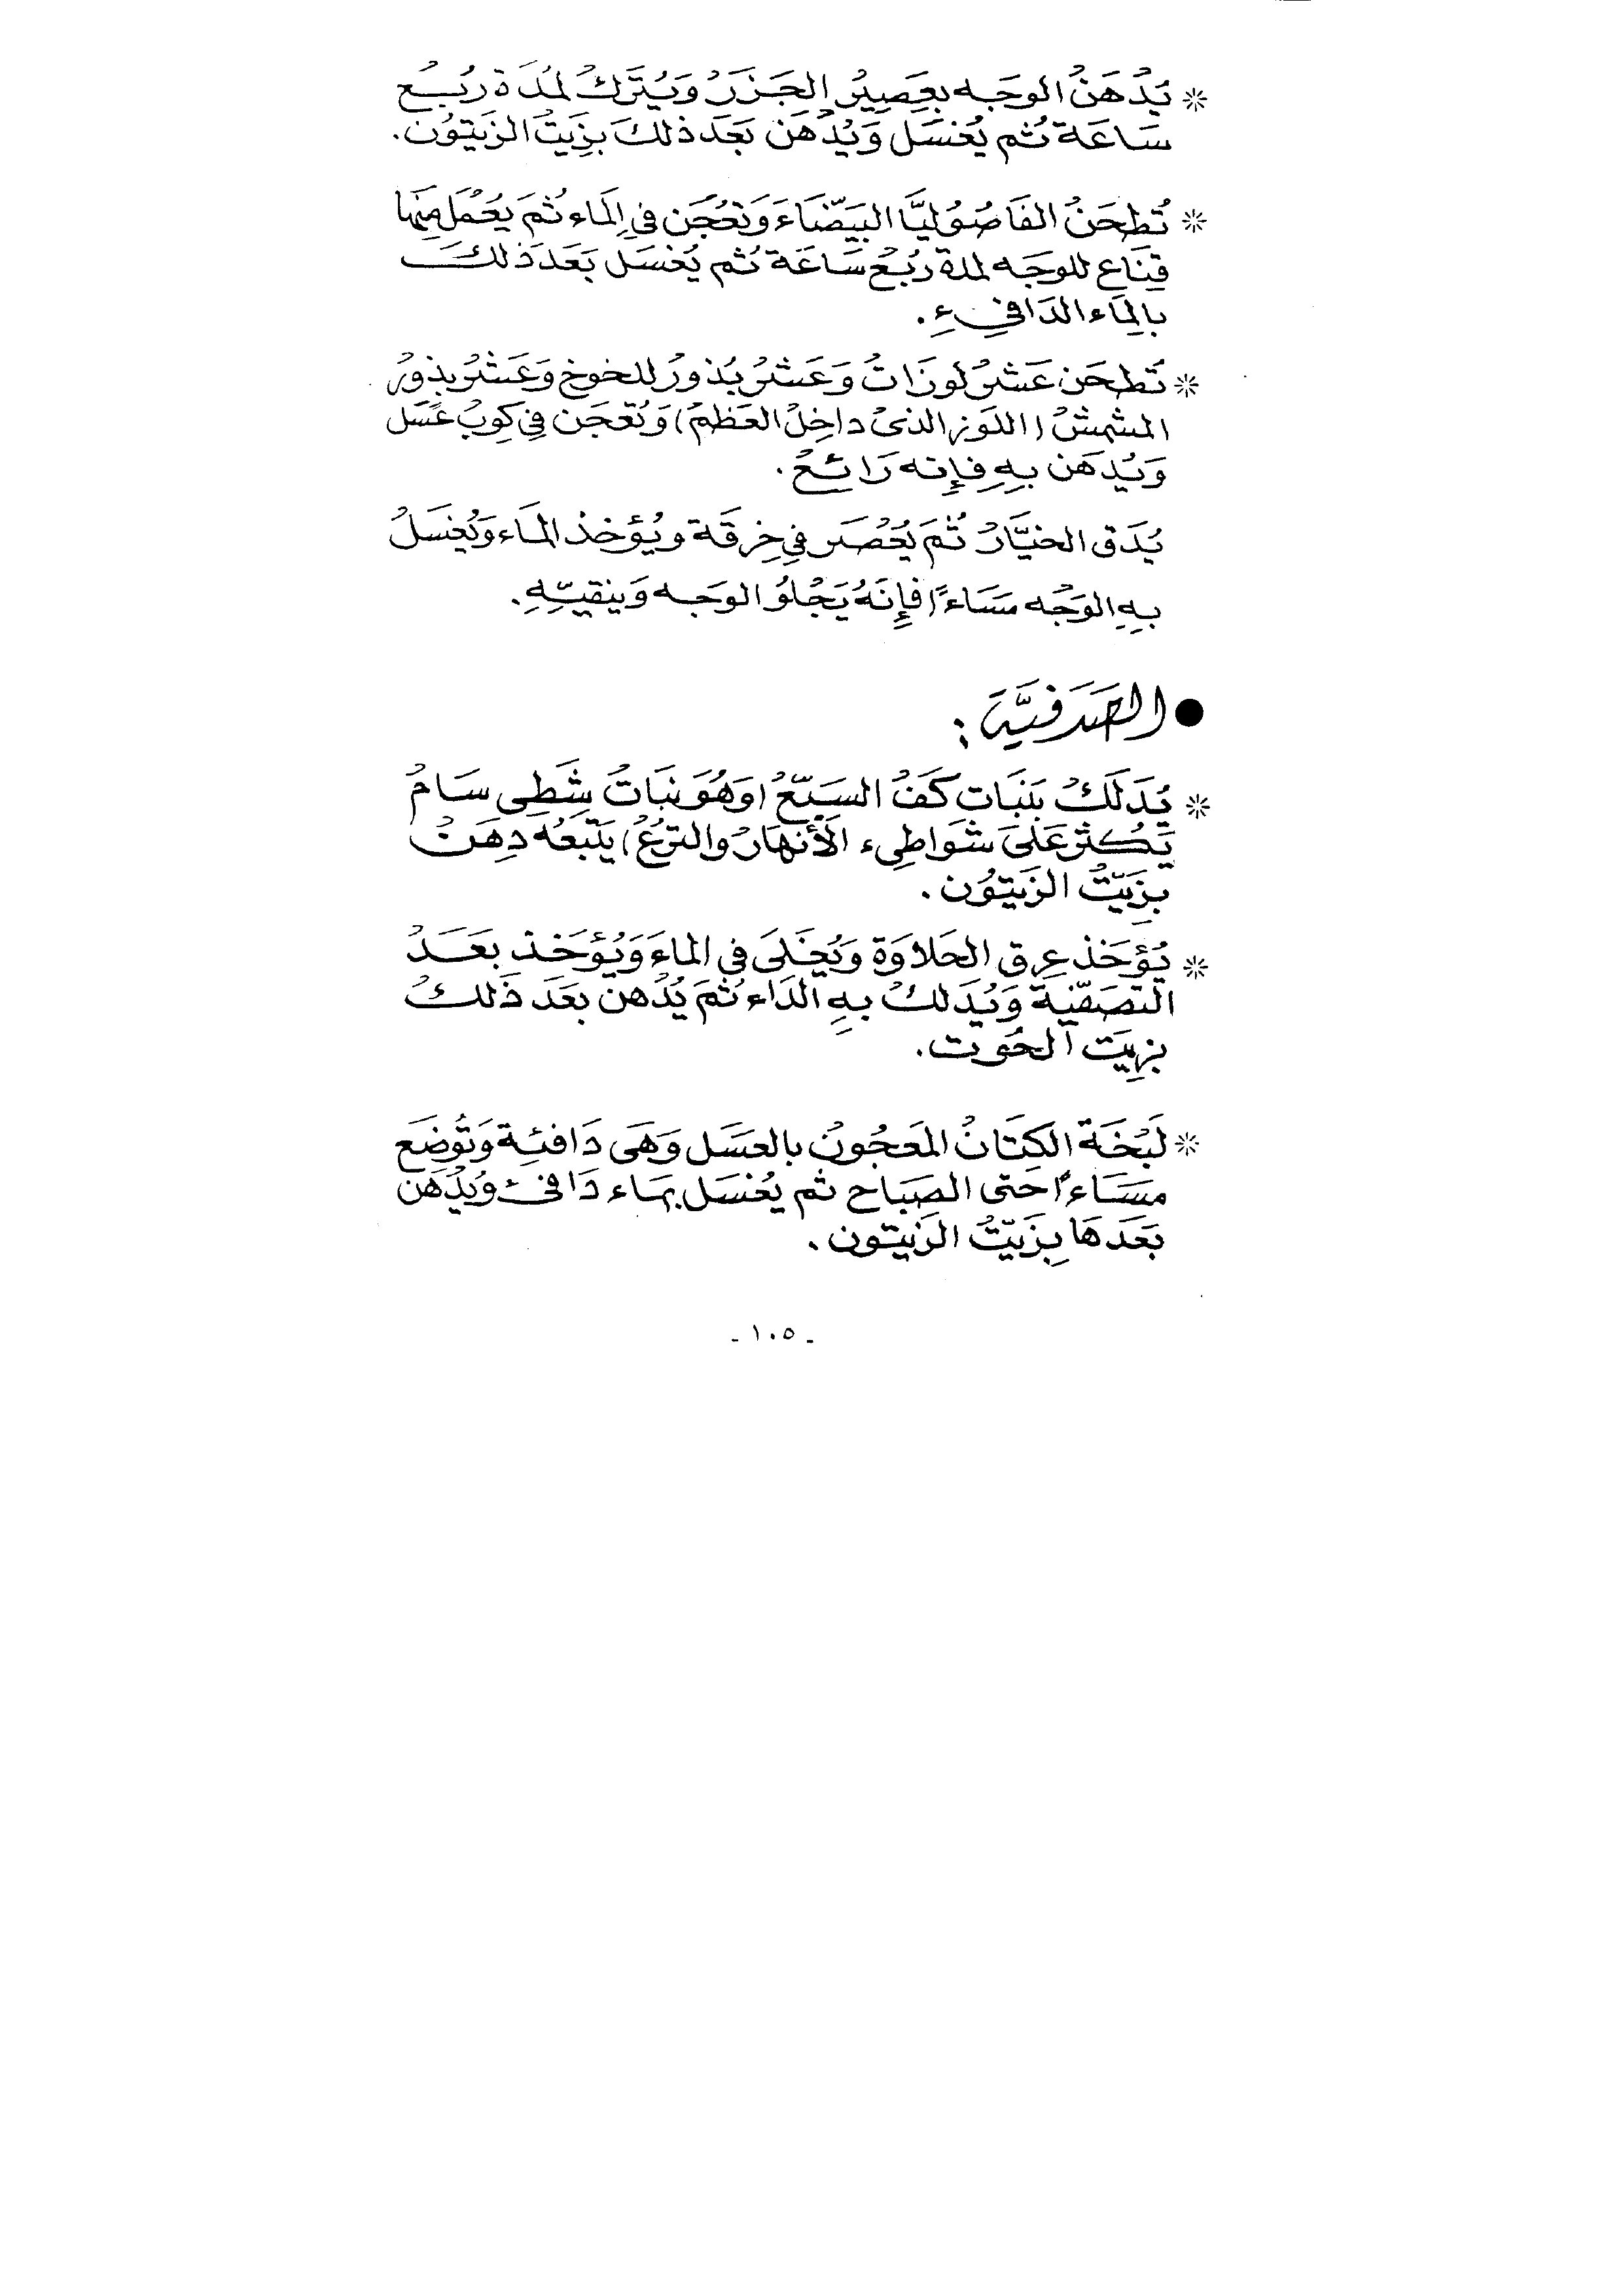 * يُدْهَنُ الوجَه بِعَصِيرُ الجَزَرُ وَيُتَركُ لمُدَة رُبْع
سَاعَة ثُم يُغْسَل وَيُدْهَن بَعَدَ ذلكَ بزَيتُ الزَيتوُن.
* تُطحَنُ الفَاصُوليَّا البَيضَاءَ وَتعْجَن في الماء ثُمَ يَعْمَل مِنَها
قِنَاع للوجَه لمدة رُبْعُ سَاعَة ثُم يُغسَل بَعَدَ ذَلكَ
بالماء الدَافِيءِ.
* تُطحَن عَشرُ لوزَاتُ وَعَشرُ بُذورُ للخوخ وَعَشرُ بذورُ
المشمشُ (اللوَز الذىْ داخِلُ العَظمُ) وَتُعَجَن فِي كوُبُ عَسَل
وَيُدهَن بِهِ فإِنه رَائعُ.
يُدَق الخيَّارُ ثُمَ يُعْصَر فِي خِرقَة ويُؤخذ الماء وَيُغسَلُ
بِهِ الوَجْه مَسَاءاً فإِنَهُ يَجْلوُ الوجَه وَينقيّهِ.
● الصَدَفيَّة :
* يُدَلَكُ بَنَبَات كَفُ السَبّعُ (وَهُوَ نبَاتُ شَطِى سَامُ
يَكثر عَلىَ شوَاطِىء الأَنهَارُ والترعُ) يَتّبعُه دِهَنُ
بزَيّتُ الزَيتوُن.
* يُؤخَذ عِرق الحَلاوَة وَيُغلَىَ في الماءَ وَيُؤخَذ بعَدُ
التصَفّيَة وَيُدَلكُ بهِ الدَاءُ ثمَ يُدْهن بعَدَ ذَلكُ
بزيَت الحُوت.
* لَبْخَة الكتَانُ المَعجُونُ بالعسَل وَهَى دَافئِة وَتوُضَع
مسَاءاً حَتى الصَبَاح ثم يُغْسَل بماء دَافئ وَيُدْهَن
بَعَدهَا بِزَيّتُ الزَيتون.
ـ ١٠٥ ـ